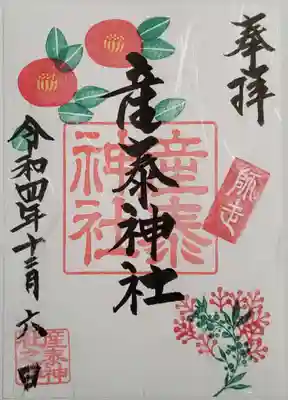 奉拝
師走
産泰神社
産泰
神社
令和四年十二月六日
産泰神
社之印